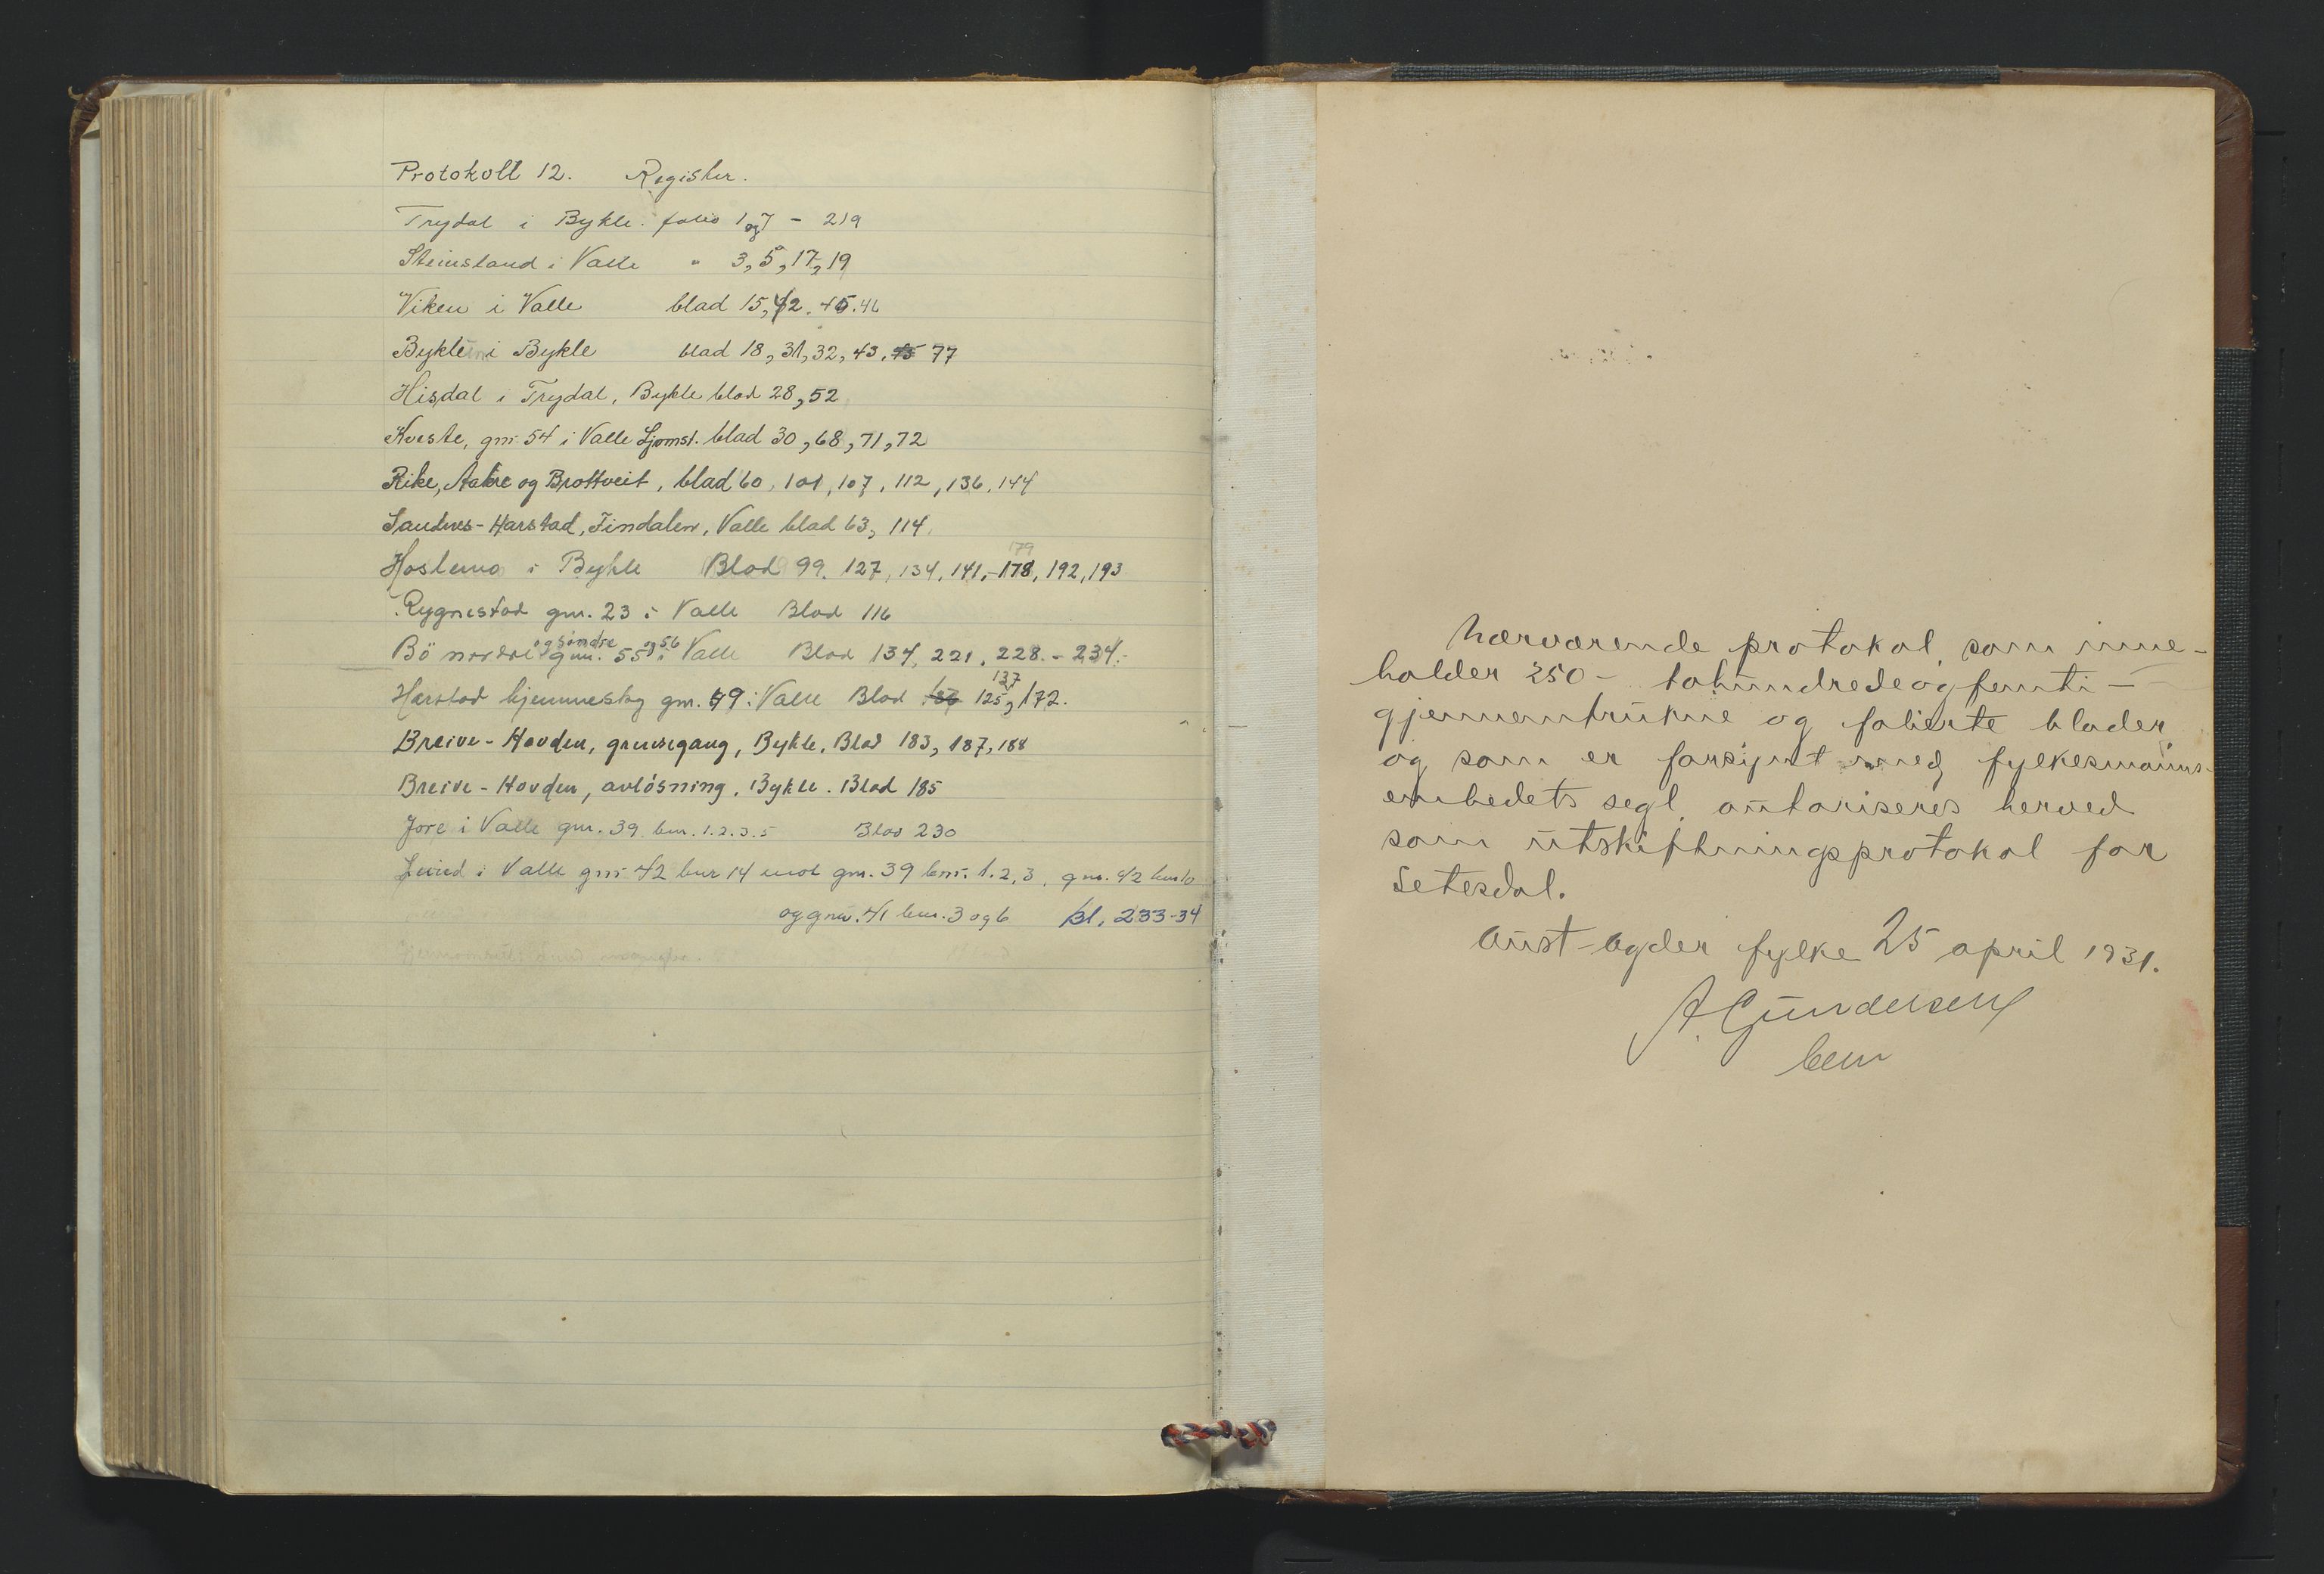 Protokoll 12. Register.
Trydal i Bykle. folio 1 og 7 - 219
Steinsland i Valle " 3, 5, 17, 19
Viken i Valle blad 15, 42. 45. 46
Bykle i Bykle blad 18, 31, 32, 43, 77
Hisdal i Trydal, Bykle blad 28, 52
Kveste, gnr 54 i Valle blad 30, 68, 71, 72
Rike, Aakre og Brottveit, blad 60, 101, 107, 112, 136, 144
Sandnes-Harstad, Finndalen, Valle blad 63, 114.
179
Hoslemo i Bykle Blad 99. 127, 134, 141, -178, 192, 193
Rygnestad gnr. 23 i Valle Blad 116
og søndre og 56
Bö nordre gnr. 55 i Valle Blad 134, 221, 228. - 234.-
137
Harstad hjemmeskog gnr. 49 i Valle Blad 125, 172.
Breive - Hovden, grensegang, Bykle, Blad 183, 187, 188
Breive - Hovden, avlösning, Bykle. Blad 185
Jore i Valle gnr. 39 bnr. 1. 2. 3. 5 Blad 230
Lund i Valle gnr 42 bnr 14 mot gnr. 39 bnr. 1. 2, 3, gnr. 42 bnr 10
og gnr. 41 bnr. 3 og 6 Bl. 233-34
Nærværende protokol, som inne-
holder 250 - tohundredeogfemti -
gjennemtrukne og folierte blader,
og som er forsynt med fylkesmanns-
embedets segl, autoriseres herved
som utskiftningsprotokol for
Setesdal.
Aust-Agder fylke 25 april 1931.
A. Gundersen
bem